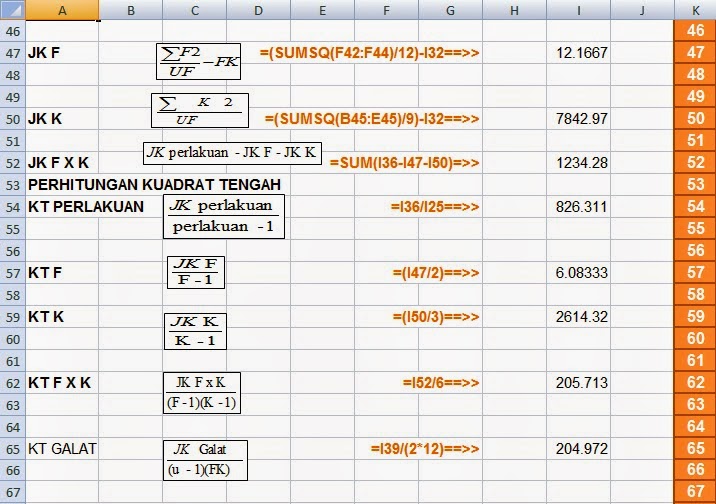 A B C D E F G H I J K
46 46
47 JK F ∑F2 / UF −FK =(SUMSQ(F42:F44)/12)-I32==>> 12.1667 47
48 48
49 49
50 JK K ∑ K 2 / UF =(SUMSQ(B45:E45)/9)-I32==>> 7842.97 50
51 51
52 JK F X K JK perlakuan - JK F - JK K =SUM(I36-I47-I50)=>> 1234.28 52
53 PERHITUNGAN KUADRAT TENGAH 53
54 KT PERLAKUAN JK perlakuan / perlakuan - 1 =I36/I25==>> 826.311 54
55 55
56 56
57 KT F JK F / F - 1 =(I47/2)==>> 6.08333 57
58 58
59 KT K JK K / K - 1 =(I50/3)==>> 2614.32 59
60 60
61 61
62 KT F X K JK F x K / (F -1)(K -1) =I52/6==>> 205.713 62
63 63
64 64
65 KT GALAT JK Galat / (u - 1)(FK) =I39/(2*12)==>> 204.972 65
66 66
67 67